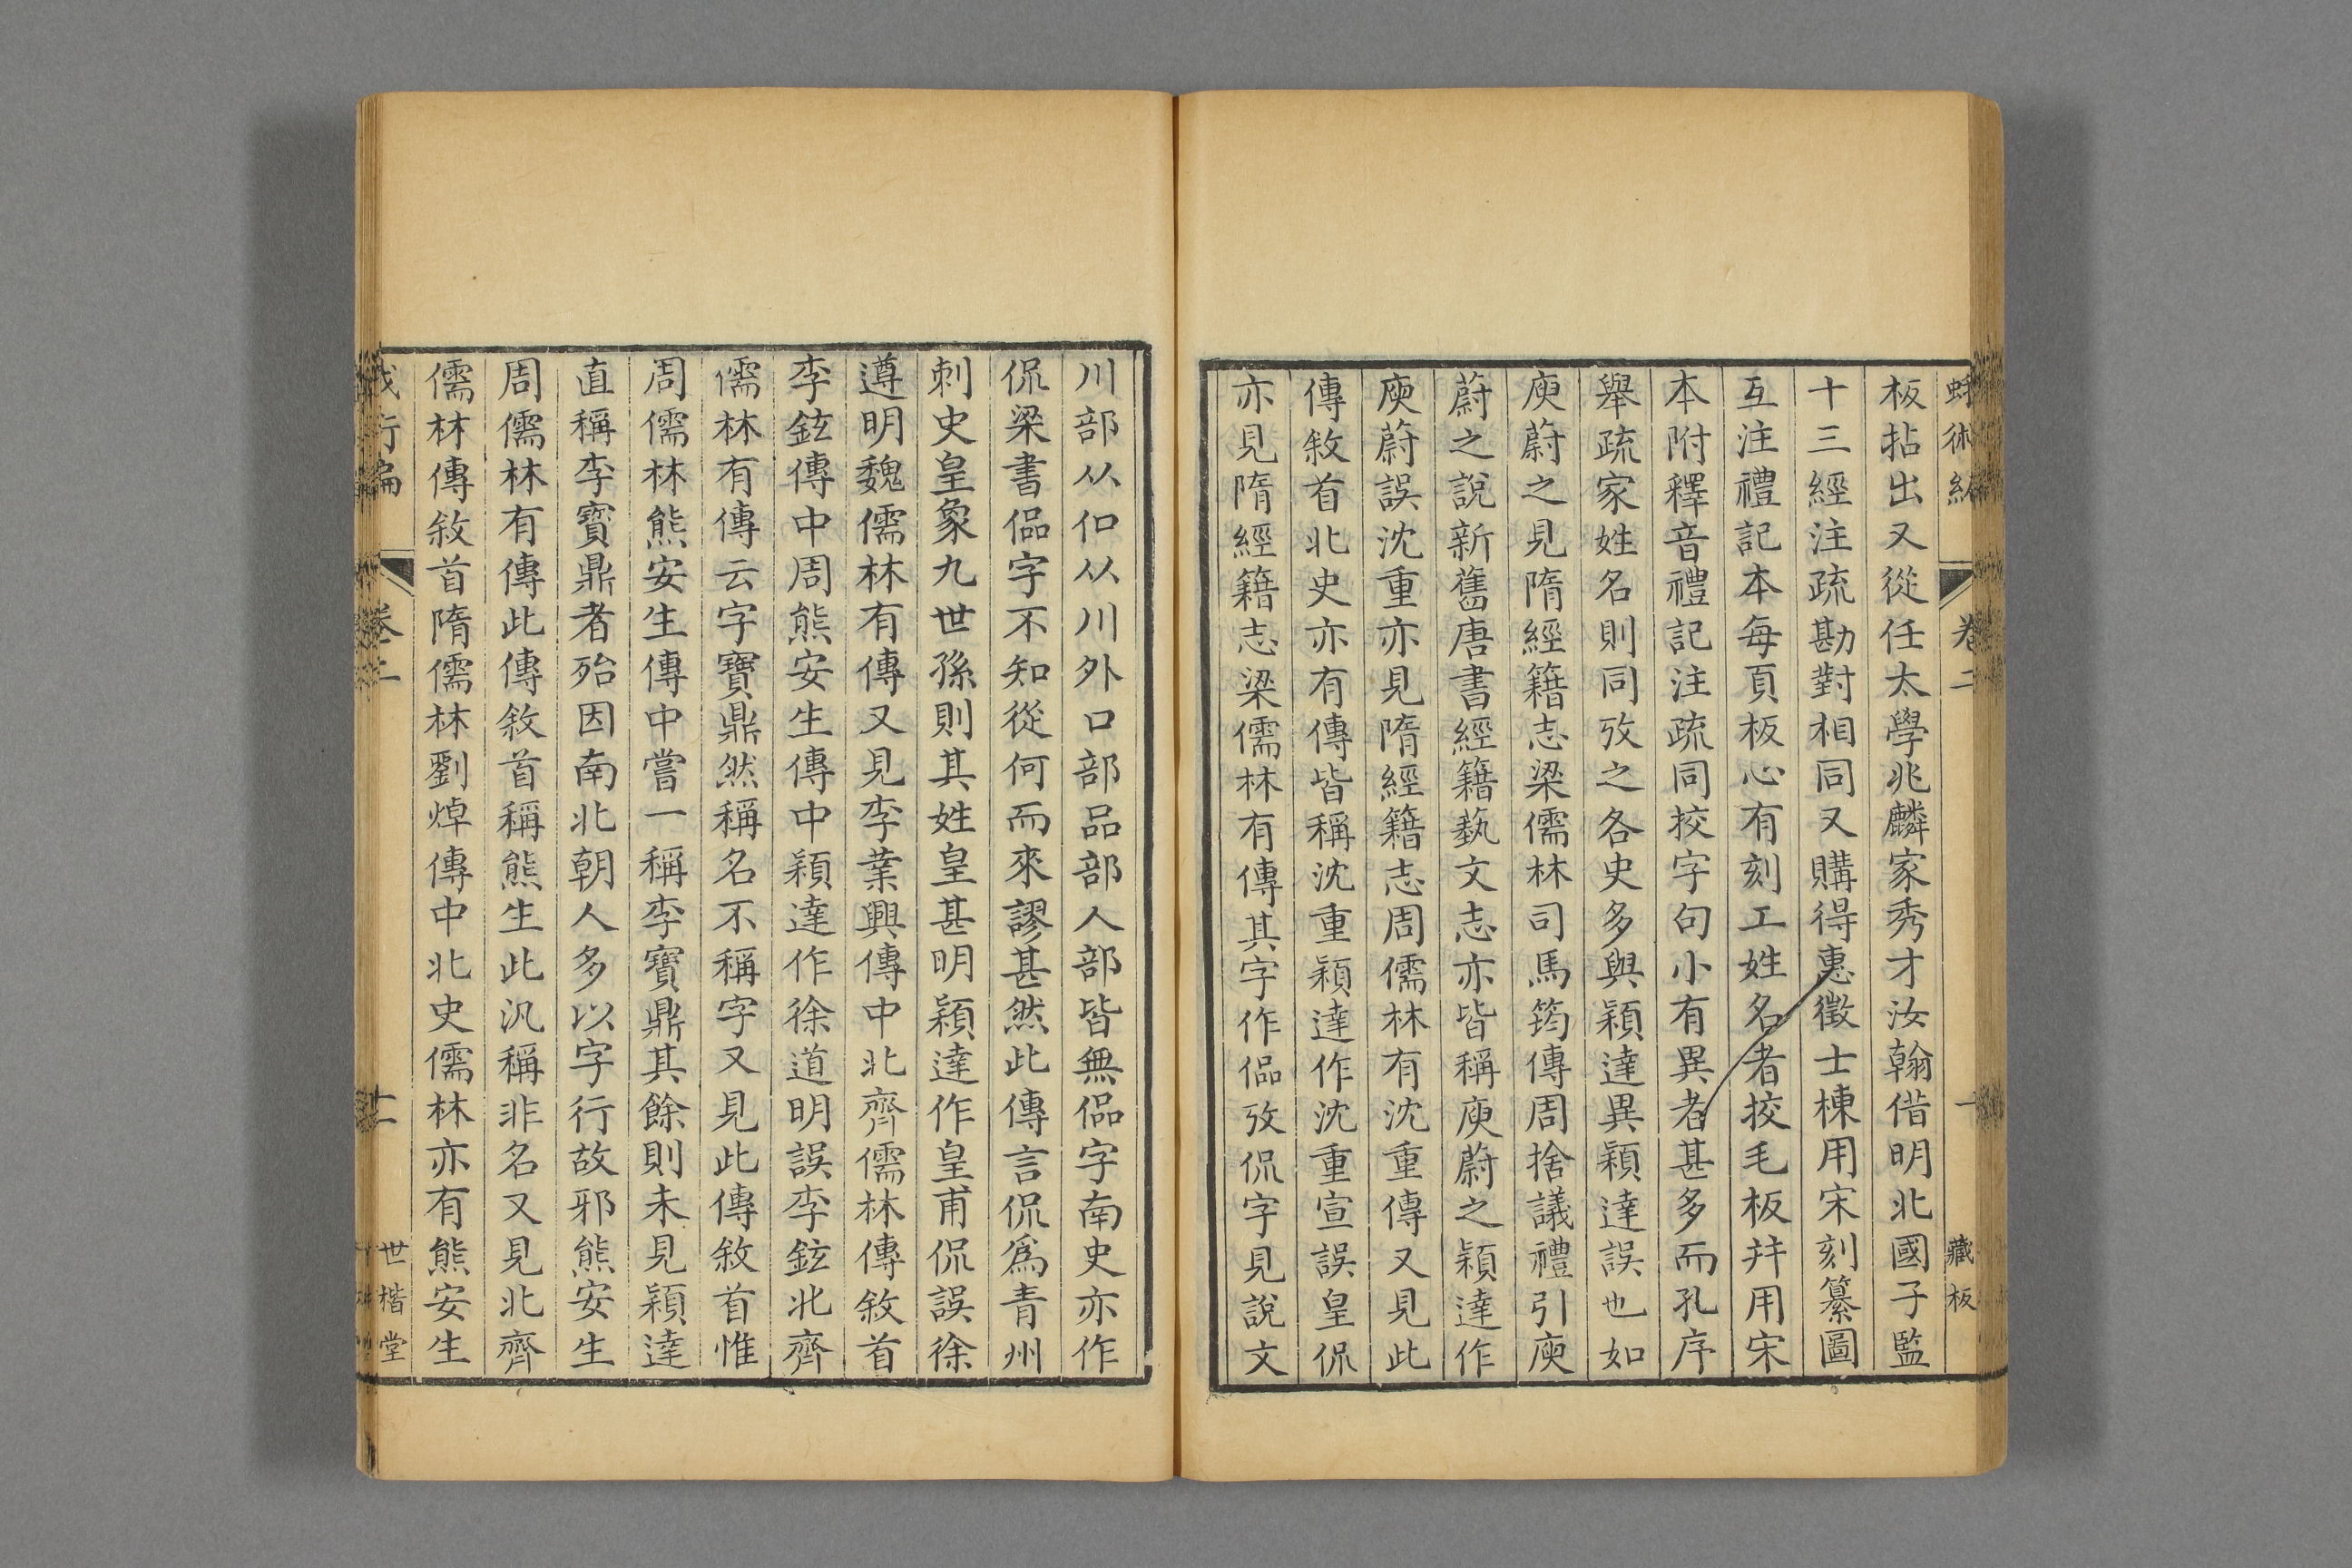 卷二
藏板
板拈出又從任太學兆麟家秀才汝翰借明北國子監
十三經注疏勘對相同又購得惠徵士棟用宋刻纂圖
互注禮記本每頁板心有刻工姓名者挍毛板幷用宋
本附釋音禮記注疏同挍字句小有異者甚多而孔序
舉疏家姓名則同攷之各史多與穎達異穎達誤也如
庾蔚之見隋經籍志梁儒林司馬筠傳周捨議禮引庾
蔚之說新舊唐書經籍藝文志亦皆稱庾蔚之穎達作
庾蔚誤沈重亦見隋經籍志周儒林有沈重傳又見此
傳敘首北史亦有傳皆稱沈重穎達作沈重宣誤皇侃
亦見隋經籍志梁儒林有傳其字作偘攷侃字見說文
川部从㐰从川外口部品部人部皆無偘字南史亦作
侃梁書偘字不知從何而來謬甚然此傳言侃爲青州
刺史皇象九世孫則其姓皇甚明穎達作皇甫侃誤徐
遵明魏儒林有傳又見李業興傳中北齊儒林傳敘首
李鉉傳中周熊安生傳中穎達作徐道明誤李鉉北齊
儒林有傳云字寶鼎然稱名不稱字又見此傳敘首惟
周儒林熊安生傳中嘗一稱李寶鼎其餘則未見穎達
直稱李寶鼎者殆因南北朝人多以字行故邪熊安生
周儒林有傳此傳敘首稱熊生此汎稱非名又見北齊
儒林傳敘首隋儒林劉焯傳中北史儒林亦有熊安生
卷二
世楷堂